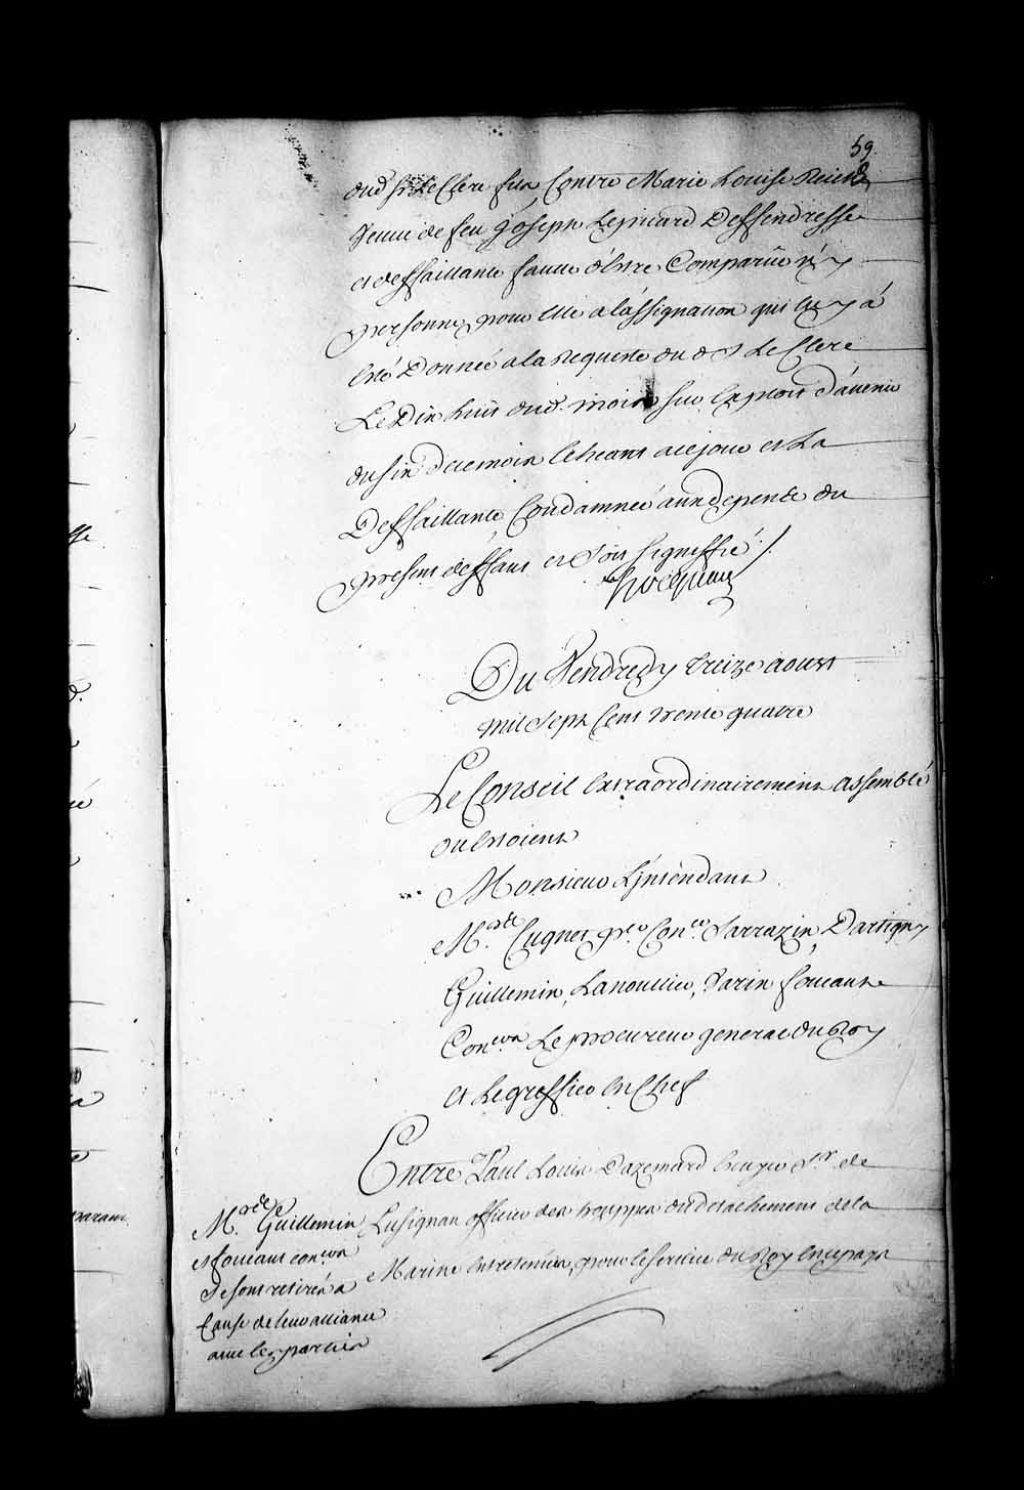 59.
dud Sr. LeClerc fils, Contre Marie Louise
Veuve de feu Joseph Leynard Deffendresse
et deffaillante faute d'estre Comparüe n'y
personne, pour Elle a l'assignation qui luy a
Esté Donnée a la Requeste du d. Sr LeClerc
Le Dix huit dud. mois sur Exploit d'avenir
du six de ce mois Echeant a ce jour et La
Deffaillante, Condamnée aux depens du
present deffaut et Soit Signeffié ./.
Hocquart
Du Vendredy treize aoust
mil Sept Cent trente quatre
Le Conseil Extraordinairement assemblé
ou Estoient
Monsieur L'jntendant
Mes. Cugnet pr.er Con.er Sarrazin, Dartigny
Guillemin, Lanoullier, Varin foucault
Con.ers Le procureur general du Roy
et Le greffier En Chef
Entre Paul Louis Dazemard Ecuyer Sr. de
Lusignan officier des trouppes du detachement de la
Marine Entretenües, pour le service du Roy En ce pays
Mes. Guillemin
et foucault con.ers
Se sont retirés a
Cause de leur alliance
avec les parties